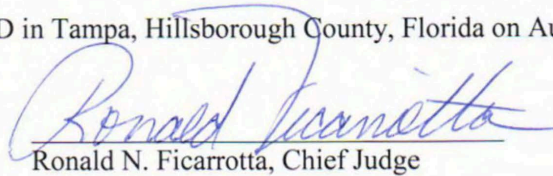 D in Tampa, Hillsborough County, Florida on Au
Ronald Ficarrotta
Ronald N. Ficarrotta, Chief Judge